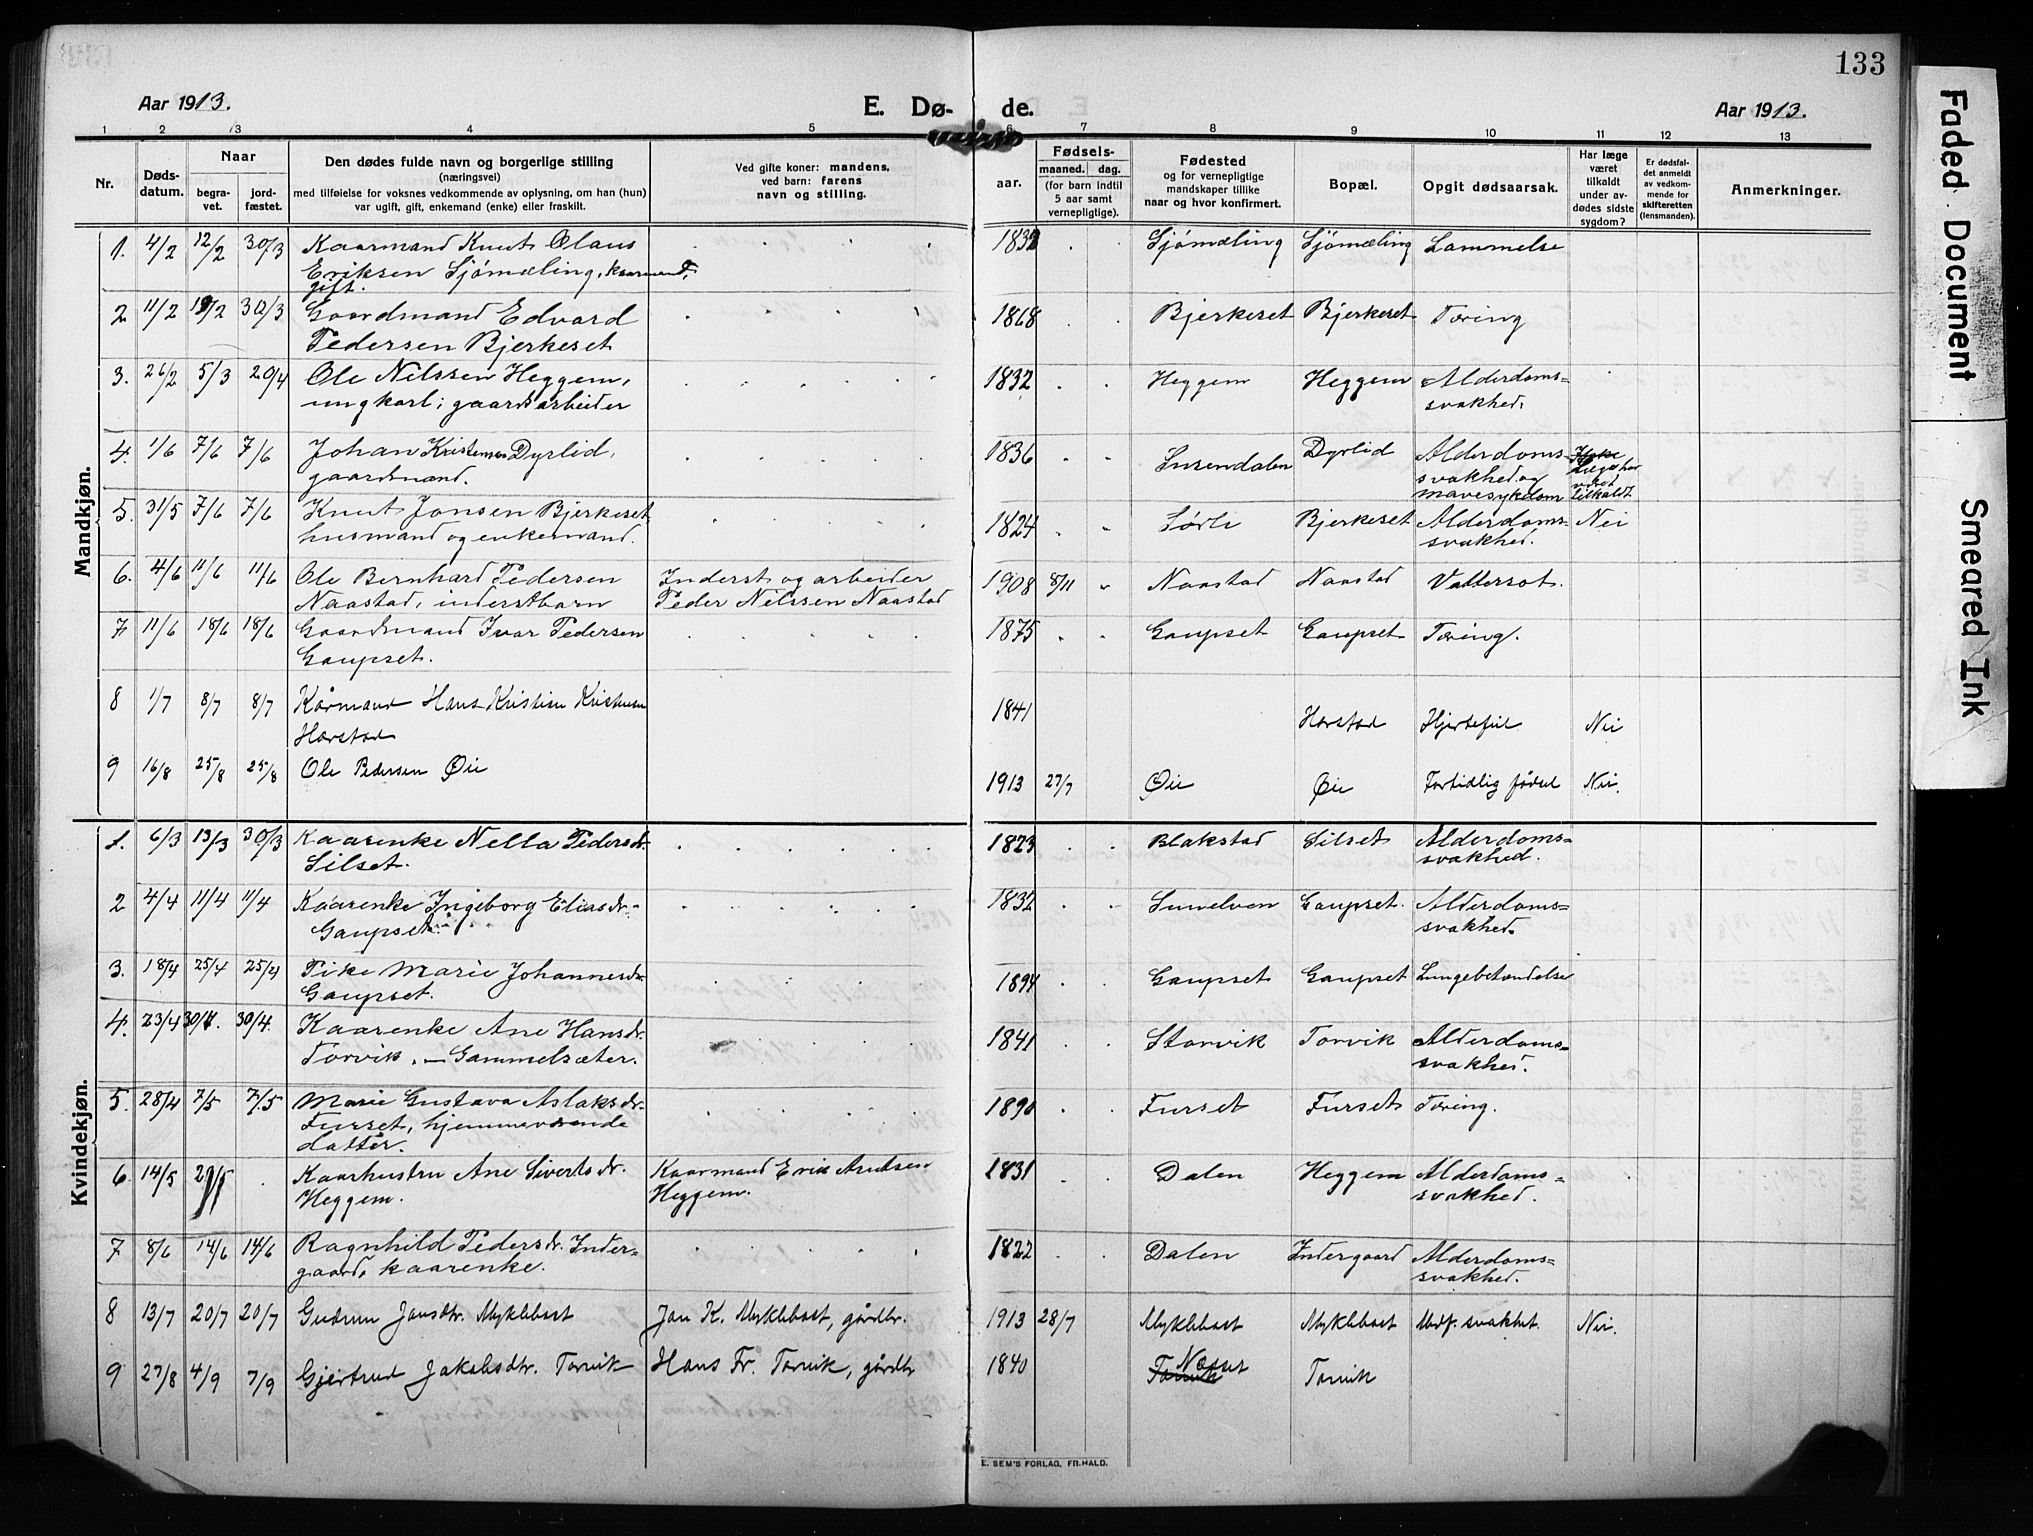 133
Aar 1913.
E. Dø-
de.
Aar 1913.
1 2 3 4 5 6 7 8 9 10 11 12 13
Nr.
Døds-
datum.
Naar
begra-
vet.
jord-
fæstet.
Den dødes fulde navn og borgerlige stilling
(næringsvei)
med tilføielse for voksnes vedkommende av oplysning, om han (hun)
var ugift, gift, enkemand (enke) eller fraskilt.
Ved gifte koner: mandens,
ved barn: farens
navn og stilling.
aar.
Fødsels-
maaned. dag.
(for barn indtil
5 aar samt
vernepligtige).
Fødested
og for vernepligtige
mandskaper tillike
naar og hvor konfirmert.
Bopæl.
Opgit dødsaarsak.
Har læge
været
tilkaldt
under av-
dødes sidste
sygdom?
Er dødsfal-
det anmeldt
av vedkom-
mende for
skifteretten
(lensmanden).
Anmerkninger.
Mandkjøn.
1. 4/2 12/2 30/3 Kaarmand Knut Olaus 1832 Sjömæling Sjömæling Lammelse
Eriksen Sjömæling, kaarmand,
gift.
2 11/2 19/2 30/3 Gaardmand Edvard 1868 Bjerkeset Bjerkeset Tæring
Pedersen Bjerkeset
3. 26/2 5/3 20/4 Ole Nilssen Heggem, 1832 Heggem Heggem Alderdoms-
ungkarl; gaardsarbeider svakhed.
4. 1/6 7/6 7/6 Johan Kristensen Dyrlid, 1836 Surendalen Dyrlid Alderdoms-
gaardmand. svakhed og
mavesykdom
været
tilkaldt
5. 31/5 7/6 7/6 Knut Jonsen Bjerkeset, 1824 Sørli Bjerkeset Alderdoms- Nei
husmand og enkemand. svakhed.
6. 4/6 11/6 11/6 Ole Bernhard Pedersen Inderst og arbeider 1908 8/11 Naastad Naastad Vattersot.
Naastad, inderstbarn Peder Nilssen Naastad
7 11/6 18/6 18/6 Gaardmand Ivar Pedersen 1875 Gaupset Gaupset Tæring.
Gaupset.
8 1/7 8/7 8/7 Kårmand Hans Kristian Kristensen 1841 Harstad Hjertefeil Nei
Harstad
9 16/8 25/8 25/8 Ole Pedersen Øie 1913 27/7 Øie Øie Fortidlig fødsel Nei.
Kvindekjøn.
1. 6/3 13/3 30/3 Kaarenke Nella Pedersdr. 1823 Blakstad Silset Alderdoms-
Silset. svakhed.
2 4/4 11/4 11/4 Kaarenke Ingeborg Eliasdr. 1832 Sunelven Gaupset. Alderdoms-
Gaupset. svakhed.
3. 18/4 25/4 25/4 Pike Marie Johannesdr. 1894 Gaupset Gaupset Lungebetændelse
Gaupset.
4. 23/4 30/4. 30/4. Kaarenke Ane Hansdr. 1841 Storvik Torvik Alderdoms-
Torvik. – Gammelsæter. svakhed.
5. 28/4 7/5 7/5 Marie Gustava Aslaksdr. 1890 Furset Furset Tæring.
Furset, hjemmeværende
datter.
6 14/5 Kaarhustru Ane Sivertsdr. Kaarmand Erik Arntsen 1831 Dalen Heggem Alderdoms-
Heggem. Heggem. svakhed.
7 8/6 14/6 14/6 Ragnhild Pedersdr. Inder- 1822 Dalen Indergaard Alderdoms-
gaard, kaarenke. svakhed.
8 13/7 20/7 20/7 Gudrun Jansdtr. Myklebost Jan K. Myklebost, gårdbr. 1913 28/7 Myklebost Myklebost Medf. svakhet. Nei.
9 27/8 4/9 7/9 Gjertrud Jakobsdtr. Torvik Hans Fr. Torvik, gårdbr 1840 Næsset Torvik
Torvik
E. SEM'S FORLAG, FR.HALD.
Faded Document
Smeared Ink